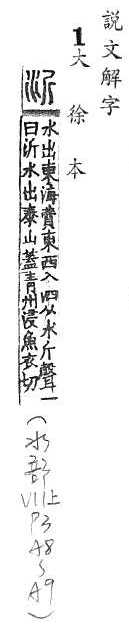 說文解字
1大徐本
沂
水出東海費東西入四从水斤聲一
曰沂水出泰山蓋青州浸魚衣切
(水部VII上P3A8SA9)